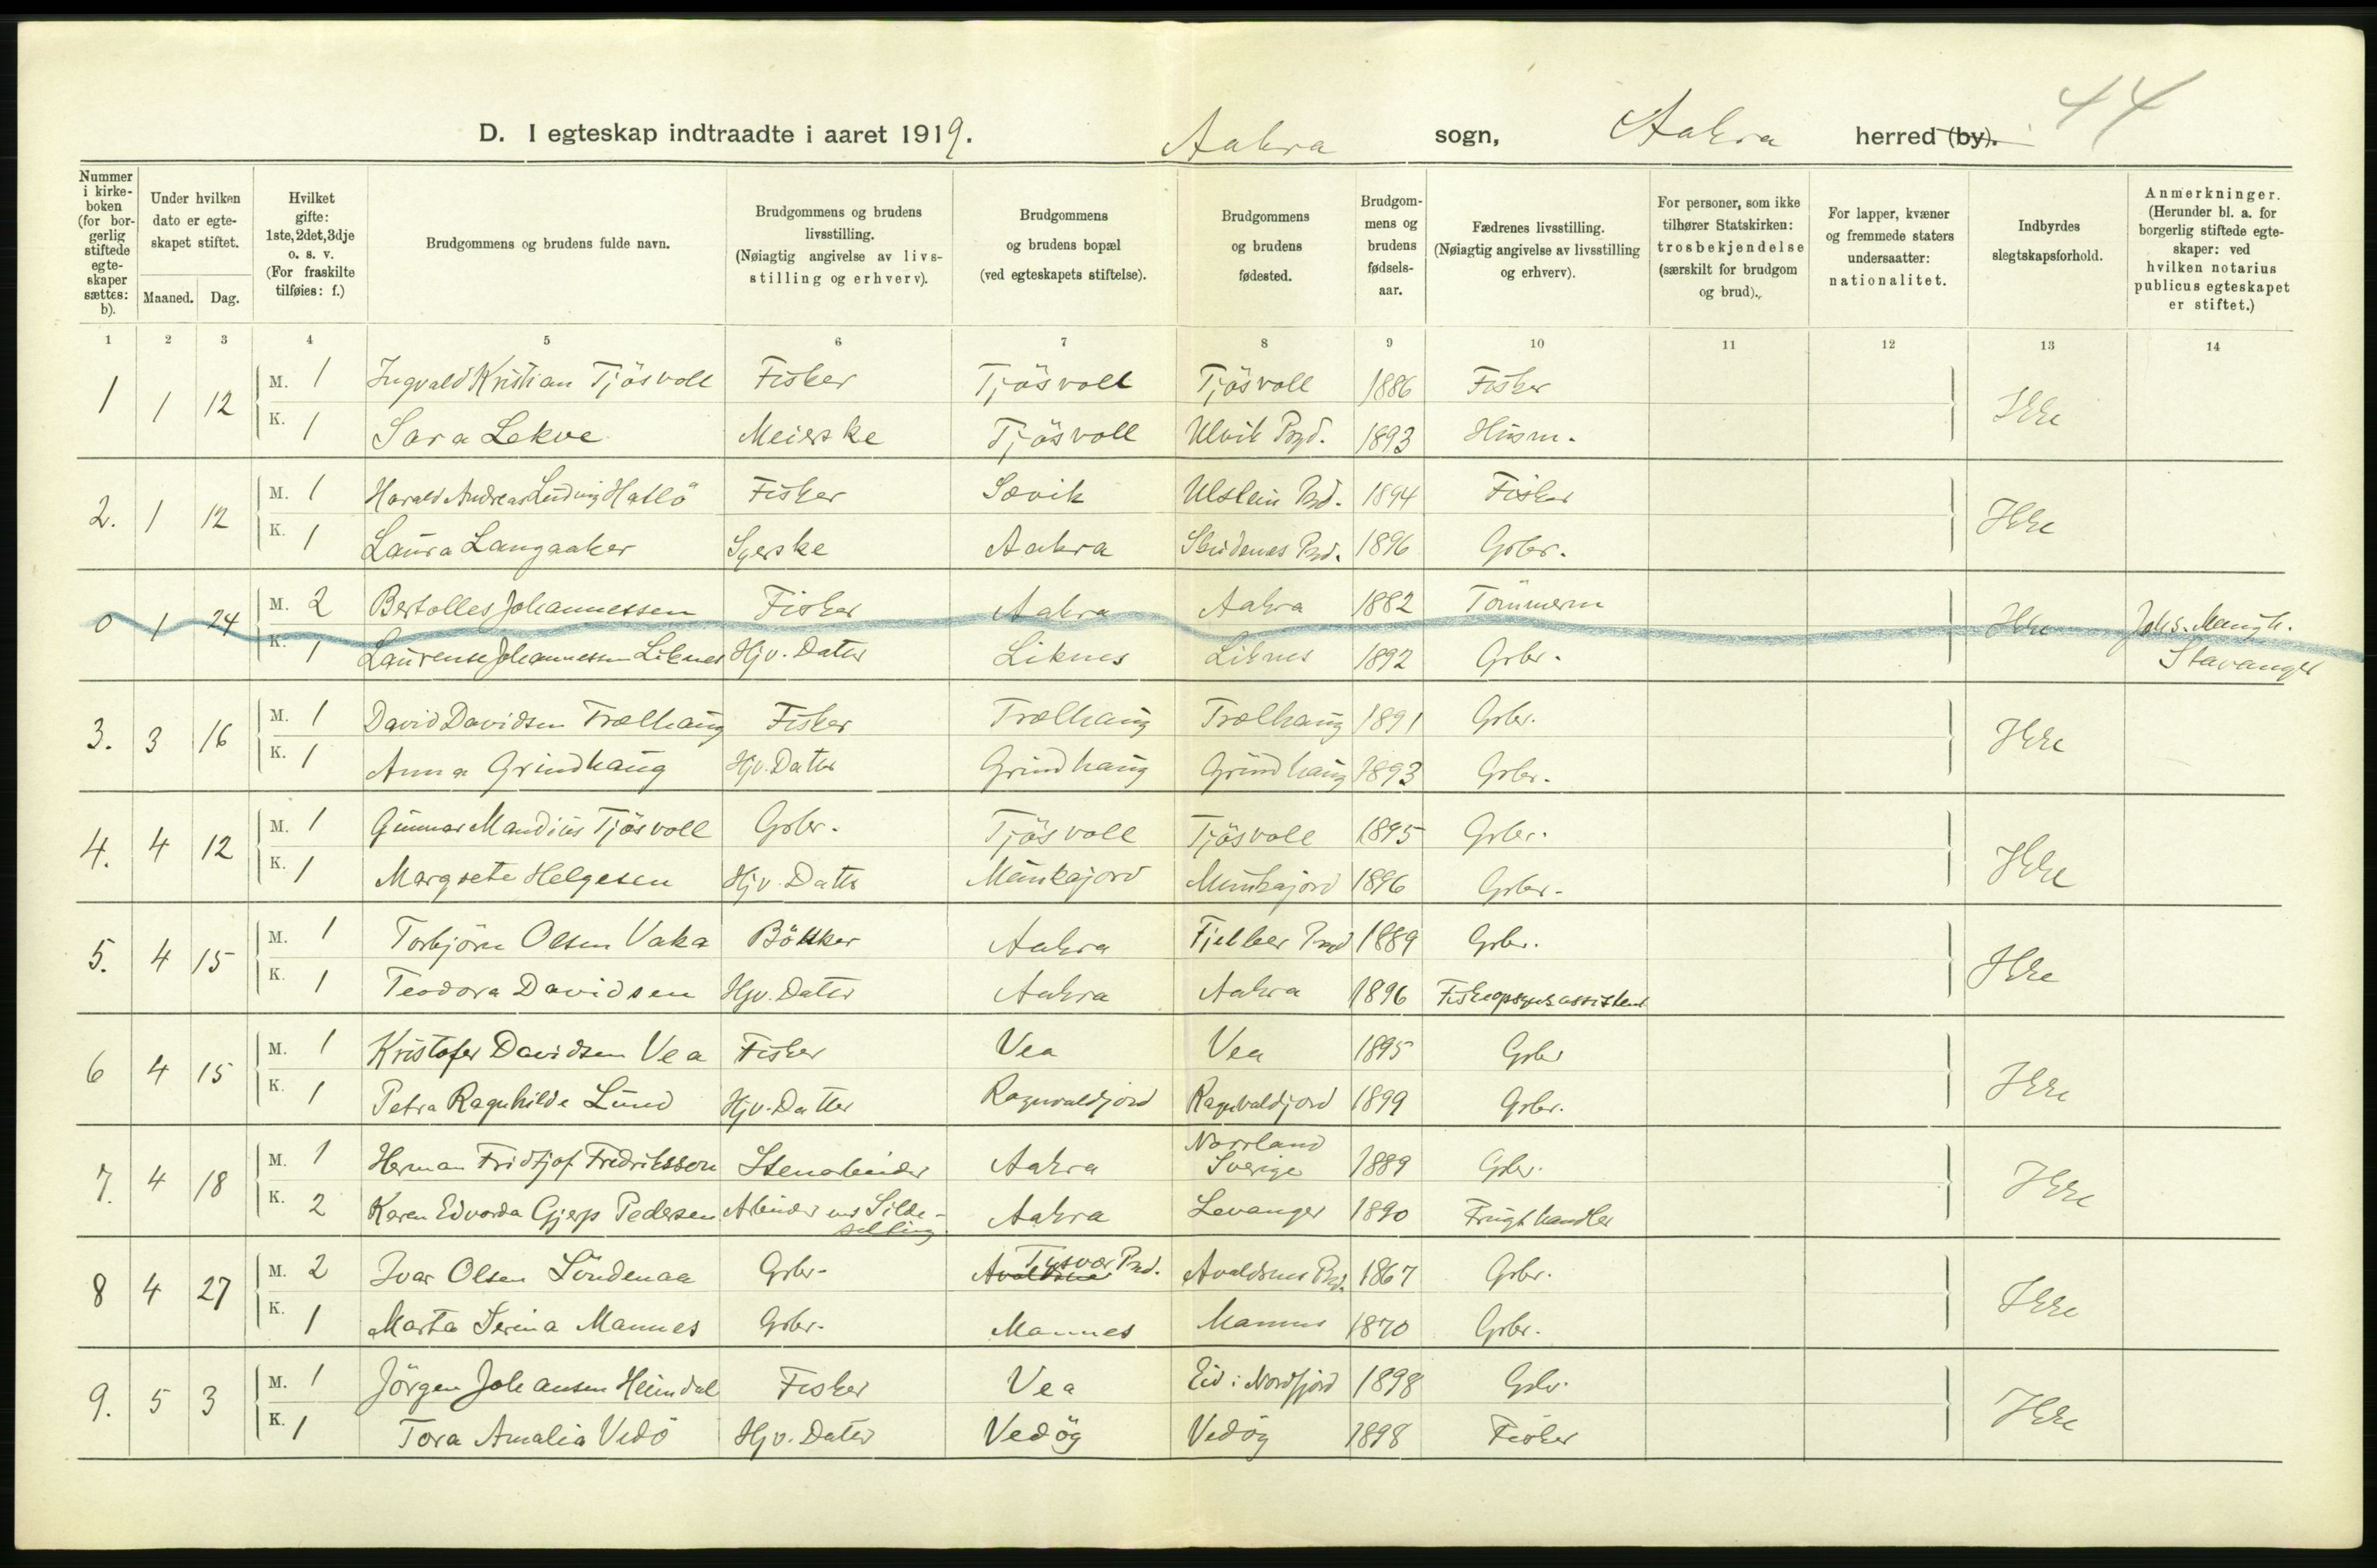 44
D. I egteskap indtraadte i aaret 1919. Aakra sogn, Aakra herred (by).
Nummer i kirkeboken (for borgerlig stiftede egteskaper sættes: b). Under hvilken dato er egteskapet stiftet. Maaned. Dag. Hvilket gifte: 1ste, 2det, 3dje o. s. v. (For fraskilte tilføies: f.) Brudgommens og brudens fulde navn. Brudgommens og brudens livsstilling. (Nøiagtig angivelse av livsstilling og erhverv). Brudgommens og brudens bopæl (ved egteskapets stiftelse). Brudgommens og brudens fødested. Brudgommens og brudens fødselsaar. Fædrenes livsstilling. (Nøiagtig angivelse av livsstilling og erhverv). For personer, som ikke tilhører Statskirken: trosbekjendelse (særskilt for brudgom og brud). For lapper, kvæner og fremmede staters undersaatter: nationalitet. Indbyrdes slegtskapsforhold. Anmerkninger. (Herunder bl. a. for borgerlig stiftede egteskaper: ved hvilken notarius publicus egteskapet er stiftet.)
1 2 3 4 5 6 7 8 9 10 11 12 13 14
1 1 12 M. 1 Ingvald Kristian Tjösvoll Fisker Tjösvoll Tjösvoll 1886 Fisker Ikke
K. 1 Sara Lekve Meierske Tjösvoll Ulvik Pgd. 1893 Husm.
2. 1 12 M. 1 Harald Andreas Ludvig Hatlö Fisker Sævik Ulstein Pgd. 1894 Fisker Ikke
K. 1 Laura Langaaker Syerske Aakra Skudenes Pgd. 1896 Grbr.
0 1 24 M. 2 Bertolles Johannessen Fisker Aakra Aakra 1882 Tömmerm Ikke Johs. Menigh.
K. 1 Laurense Johannessen Liknes Hjv. Datter Liknes Liknes 1892 Grbr. Stavanger
3. 3 16 M. 1 David Davidsen Trælhaug Fisker Trælhaug Trælhaug 1891 Grbr. Ikke
K. 1 Anna Grindhaug Hjv. Datter Grindhaug Grindhaug 1893 Grbr.
4. 4 12 M. 1 Gunnar Mandius Tjösvoll Grbr. Tjösvoll Tjösvoll 1895 Grbr. Ikke
K. 1 Margrete Helgesen Hjv. Datter Munkajord Munkajord 1896 Grbr.
5. 4 15 M. 1 Torbjörn Olsen Vaka Bökker Aakra Fjelber Pgd 1889 Grbr. Ikke
K. 1 Teodora Davidsen Hjv. Datter Aakra Aakra 1896 Fiskeopsynsassistent
6 4 15 M. 1 Kristofer Davidsen Vea Fisker Vea Vea 1895 Grbr Ikke
K. 1 Petra Ragnhilde Lund Hjv. Datter Ragnvaldjord Ragnvaldjord 1899 Grbr.
7. 4 18 M. 1 Herman Fridtjof Fredriksson Stenarbeider Aakra Norrland Sverige 1889 Grbr. Ikke
K. 2 Karen Edvarda Gjerp Pedersen Arbeider ved Sildesalting Aakra Levanger 1890 Frugthandler
8 4 27 M. 2 Ivar Olsen Söndenaa Grbr. Avaldsnes Tysvær Pgd. Avaldsnes Pgd. 1867 Grbr. Ikke
K. 1 Marta Serina Mannes Grbr. Mannes Mannes 1870 Grbr.
9. 5 3 M. 1 Jörgen Johansen Heimdal Fisker Vea Eid i Nordfjord 1898 Grbr. Ikke
K. 1 Tora Amalia Vedö Hjv. Datter Vedöy Vedöy 1898 Fisker